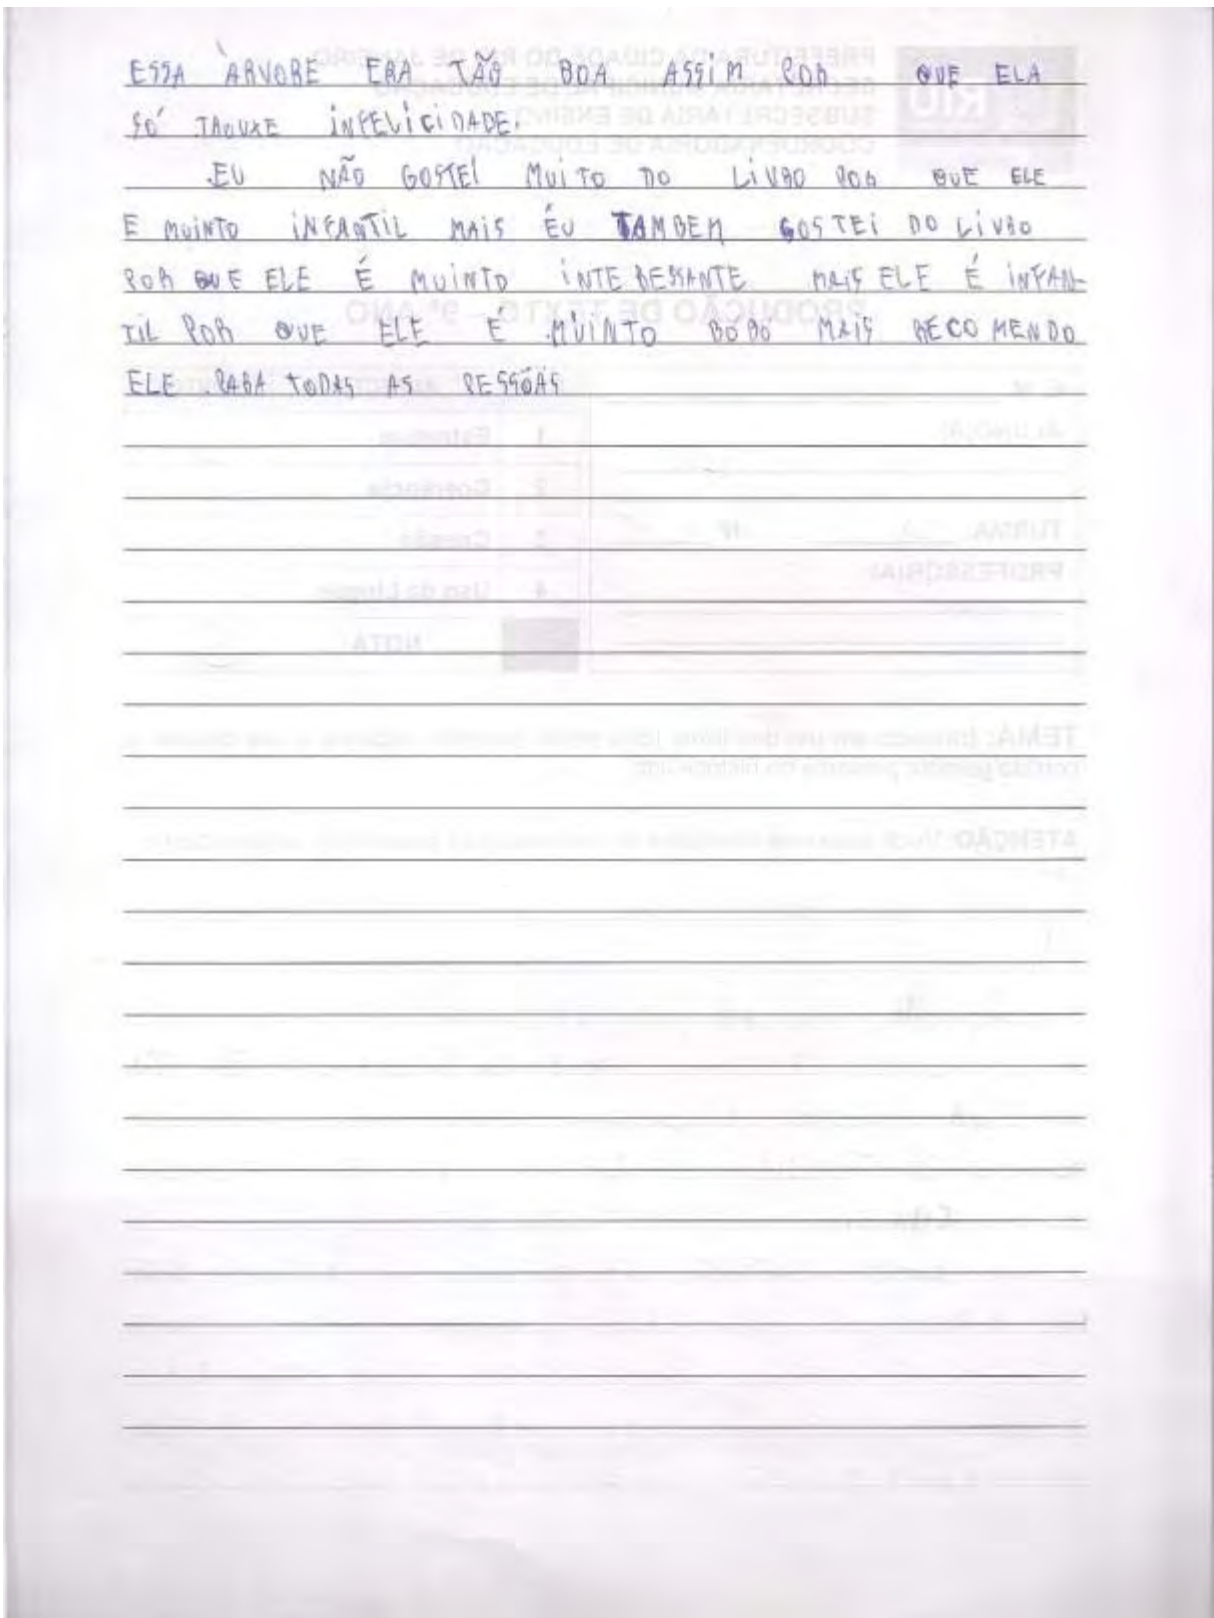 ESSA ÀRVORE ERA TÃO BOA ASSIM POR QUE ELA
SÓ TROUXE INFELICIDADE.
EU NÃO GOSTEI MUITO DO LIVRO POR QUE ELE
E MUINTO INFANTIL MAIS ÉU TAMBEM GOSTEI DO LIVRO
POR QUE ELE É MUINTO INTERESSANTE MAIS ELE É INFAN-
TIL POR QUE ELE É MUINTO BOBO MAIS RECOMENDO
ELE PARA TODAS AS PESSÕAS